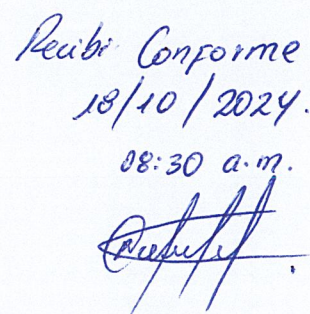 Recibi Conforme
18/10/2024.
08:30 a.m.